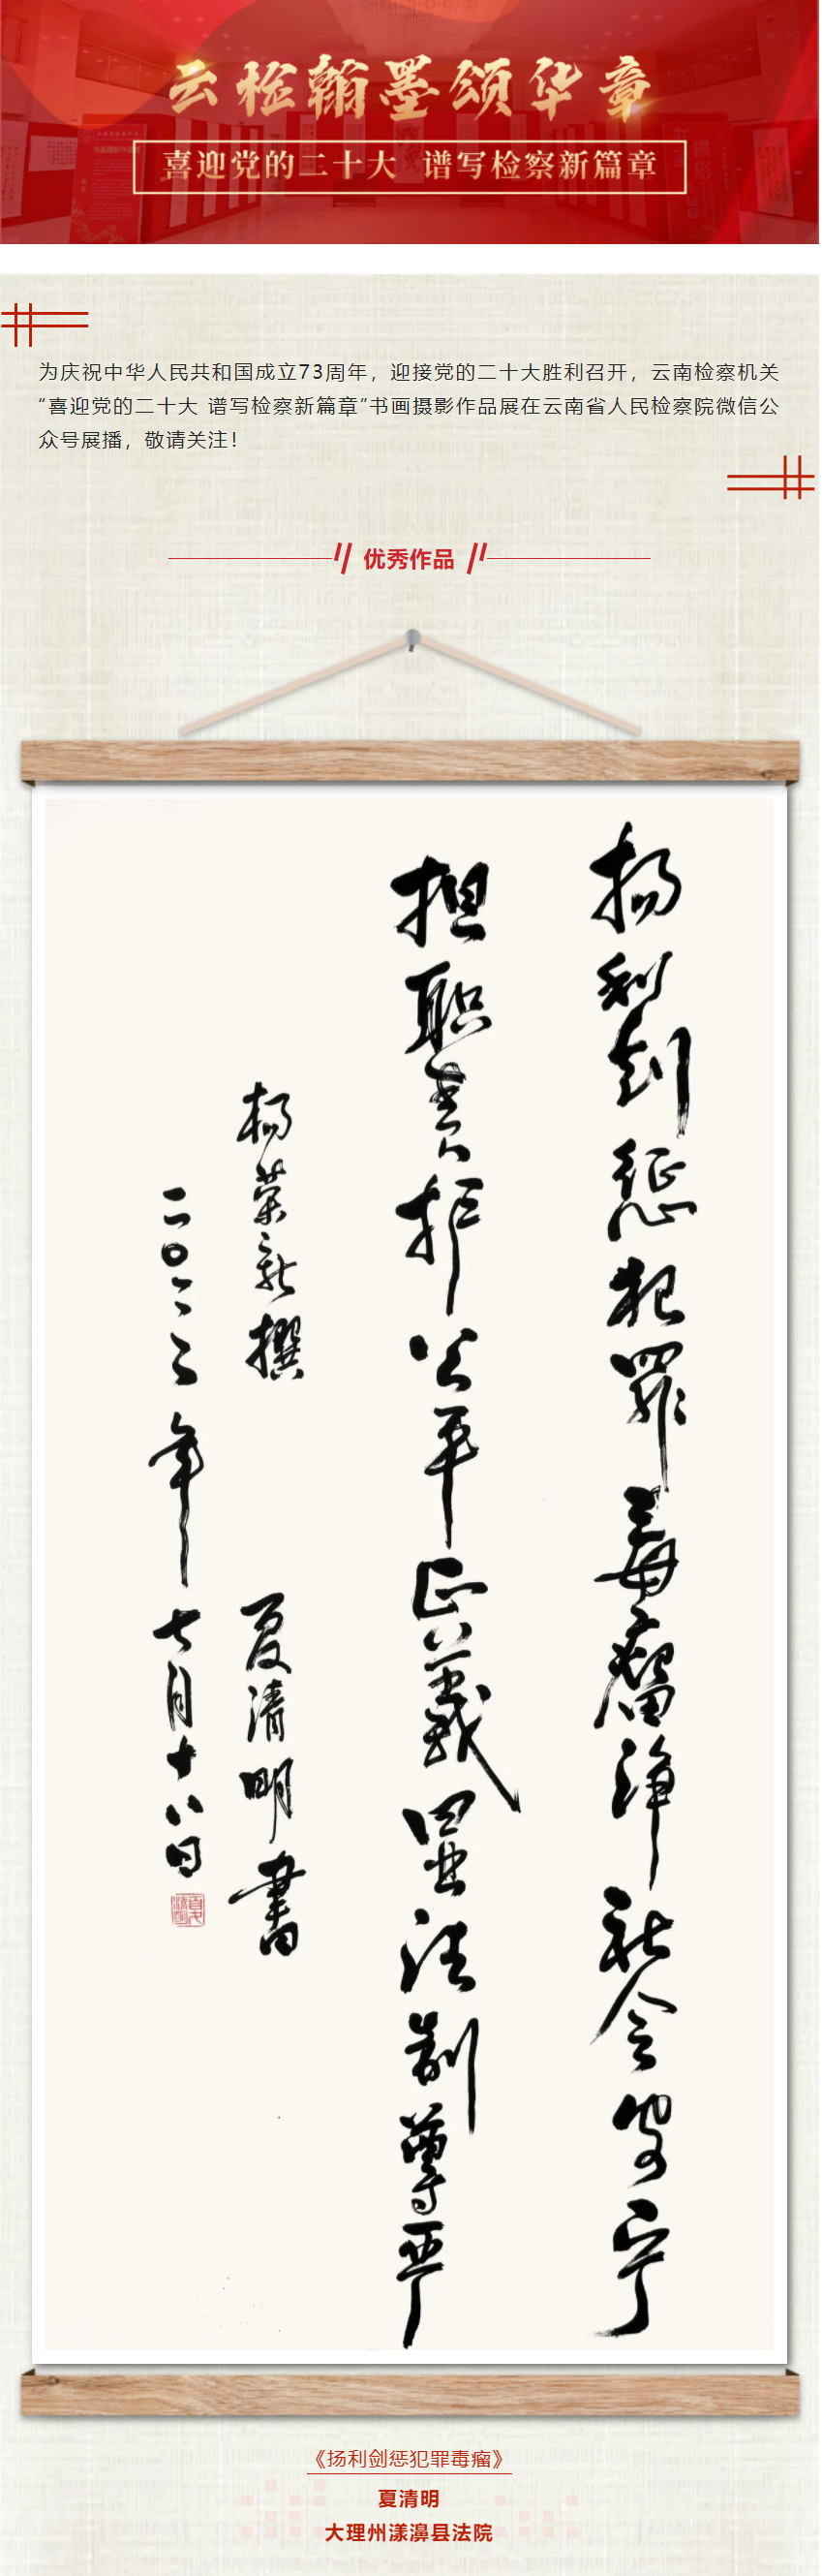 云检翰墨颂华章
喜迎党的二十大 谱写检察新篇章
为庆祝中华人民共和国成立73周年，迎接党的二十大胜利召开，云南检察机关
“喜迎党的二十大 谱写检察新篇章”书画摄影作品展在云南省人民检察院微信公
众号展播，敬请关注！
优秀作品
扬利剑惩犯罪毒瘤净社会安宁
担职责护公平正义显法制尊严
杨荣新撰 夏清明书
二〇二二年七月十八日
《扬利剑惩犯罪毒瘤》
夏清明
大理州漾濞县法院